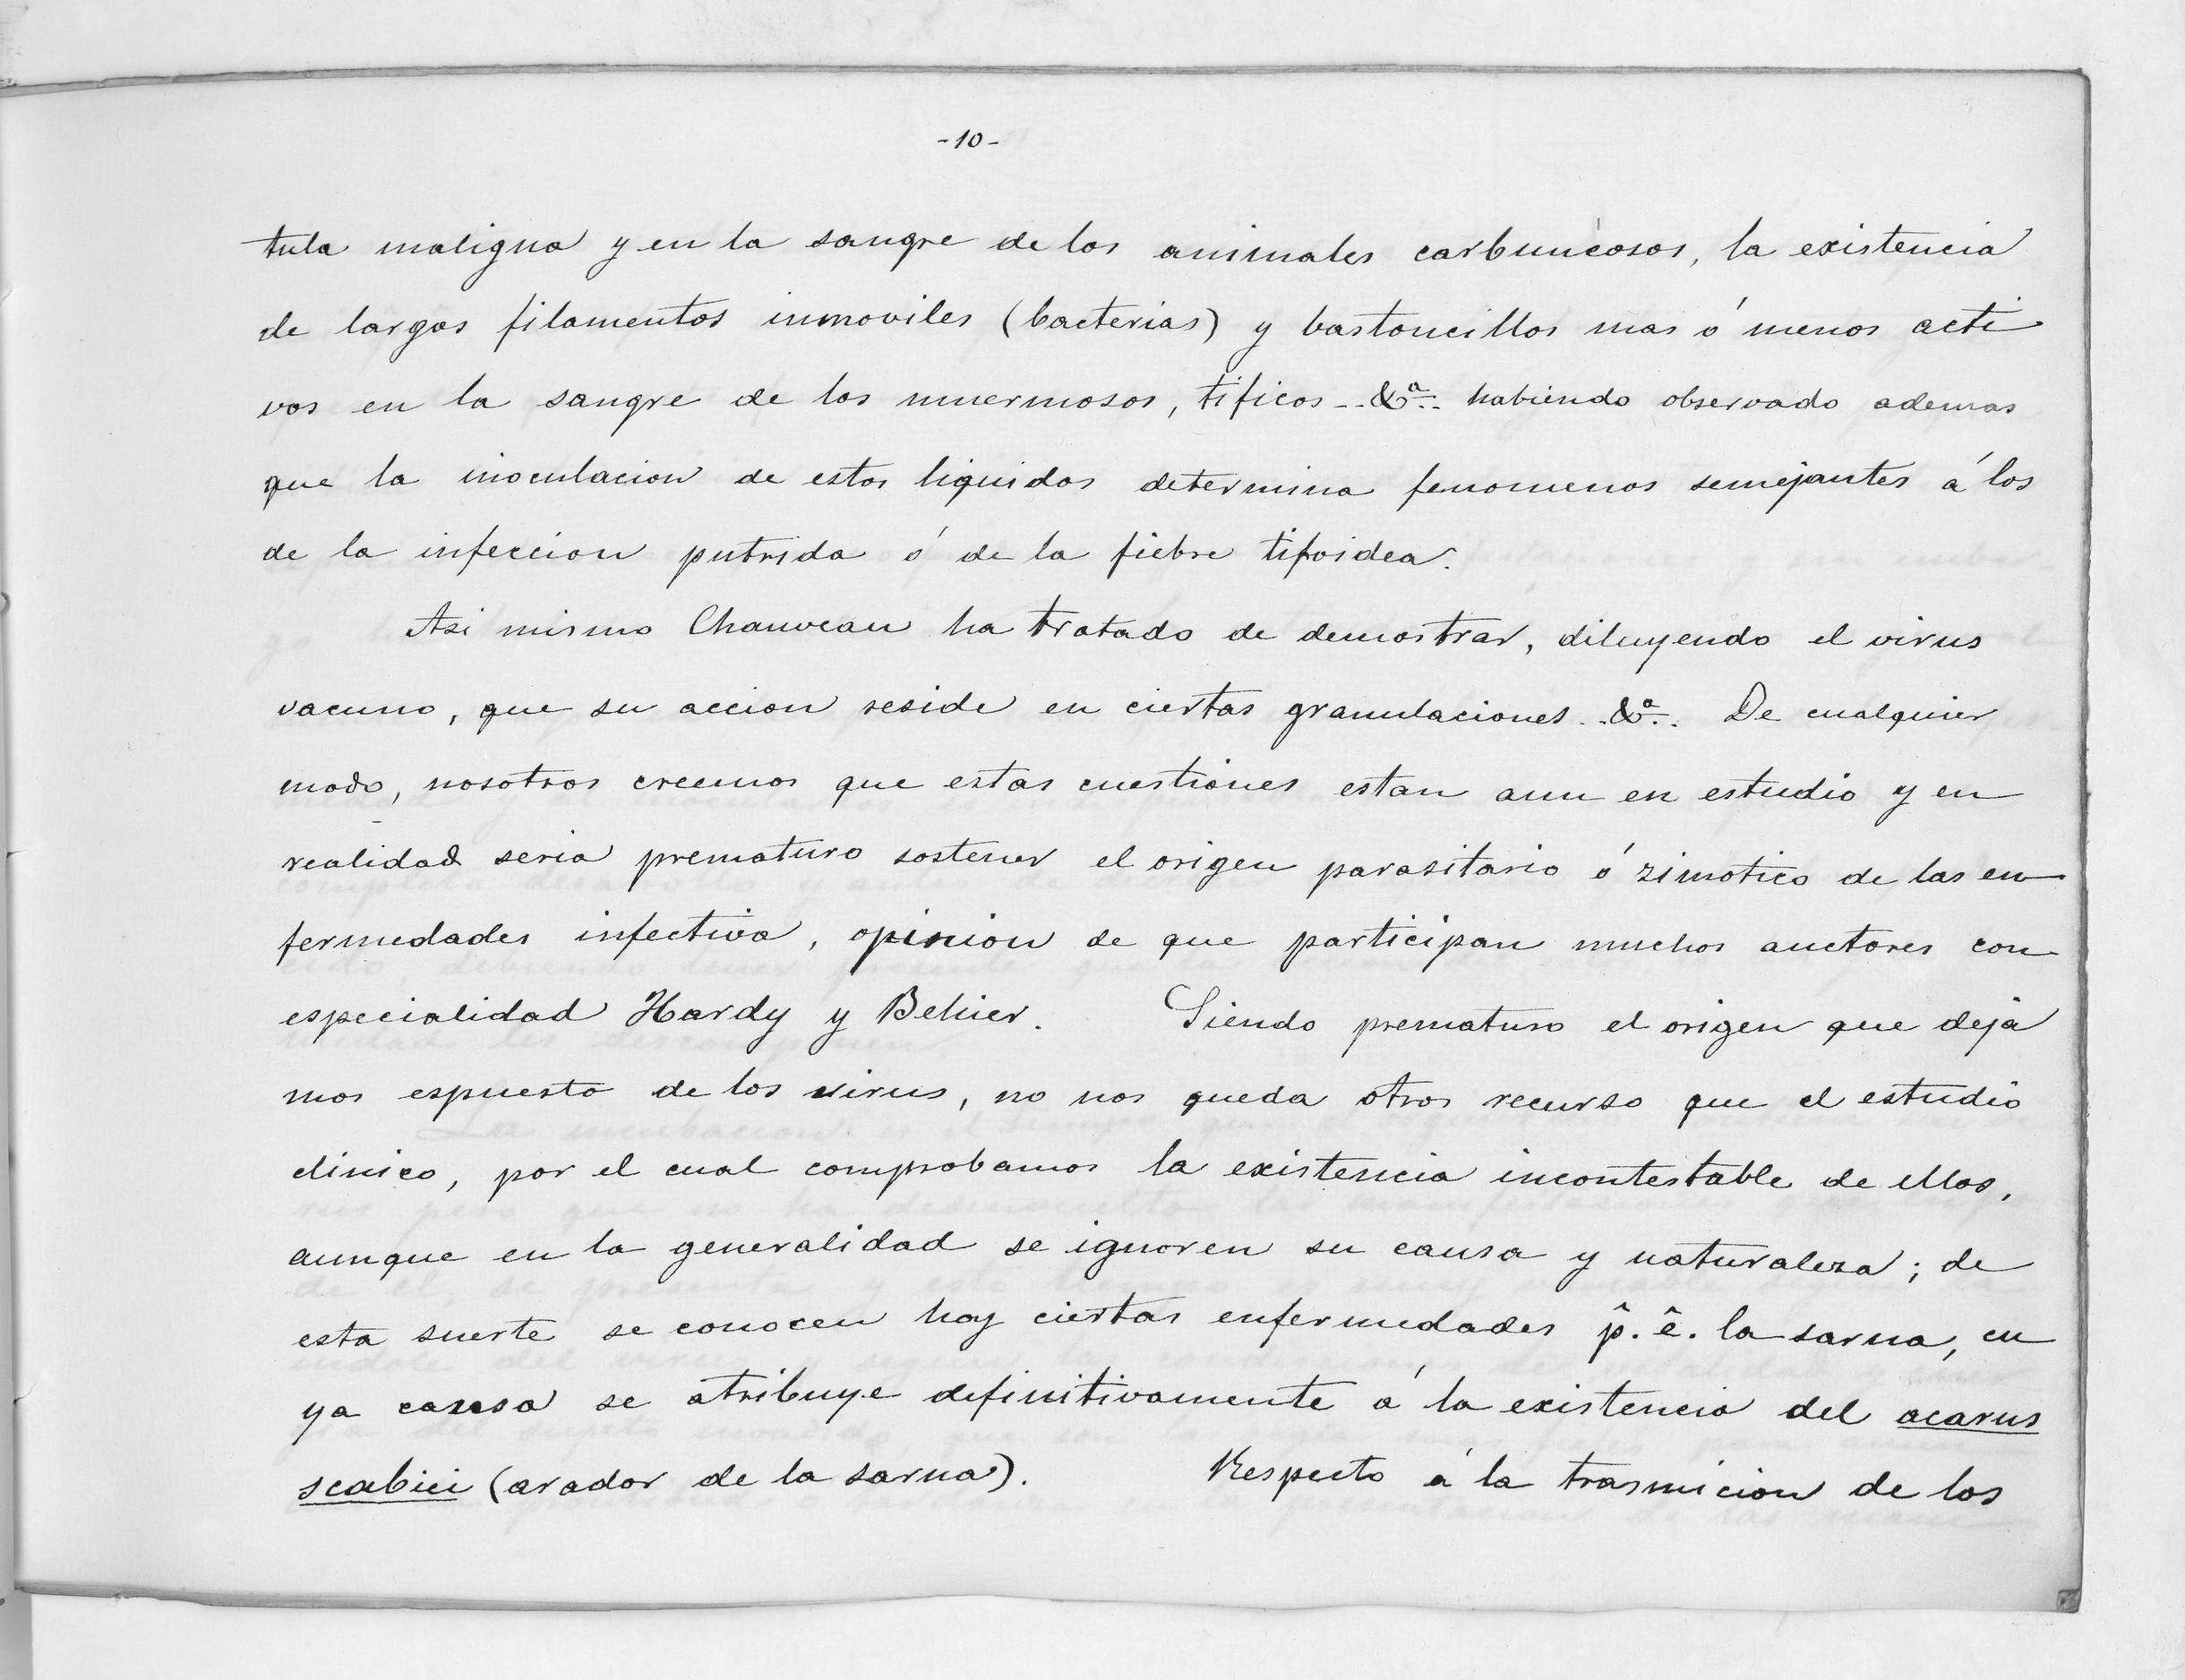 -10-
tula maligna y en la sangre de los animales carbuncosos, la existencia
de largos filamentos inmoviles (bacterias) y bastoncillos mas ó menos acti
vos en la sangre de los muermosos, tificos -..&ª.. habiendo observado ademas
que la inoculacion de estos liquidos determina fenomenos semejantes á los
de la infeccion putrida ó de la fiebre tifoidea.
Asi mismo Chauveau ha tratado de demostrar, diluyendo el virus
vacuno, que su accion reside en ciertas granulaciones..&ª.. De cualquier
modo, nosotros creemos que estas cuestiones estan aun en estudio y en
realidad seria prematuro sostener el origen parasitario ó zimotico de las en
fermedades infectiva, opinion de que participan muchos auctores con
especialidad Hardy y Behier. Siendo prematuro el origen que deja
mos espuesto de los virus, no nos queda otros recurso que el estudio
clinico, por el cual comprobamos la existencia incontestable de ellos,
aunque en la generalidad se ignoren su causa y naturaleza; de
esta suerte se conocen hoy ciertas enfermedades p̂. ê. la sarna, cu
ya causa se atribuye definitivamente á la existencia del acarus
scabiei (arador de la sarna). Respecto á la trasmicion de los